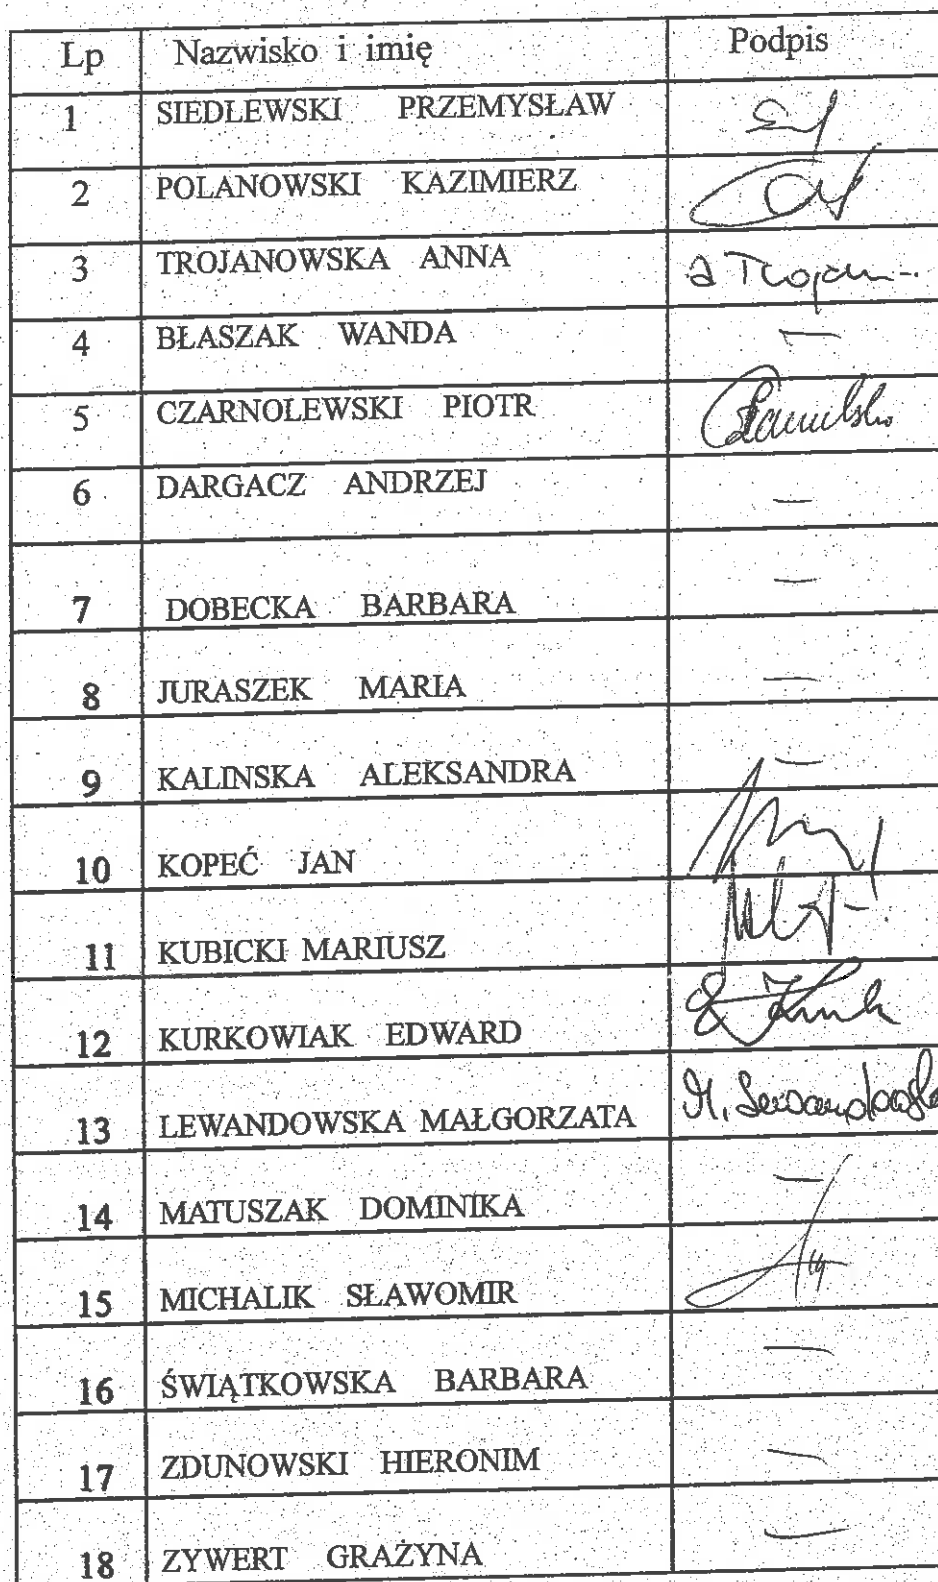 Lp Nazwisko i imię Podpis
1 SIEDLEWSKI PRZEMYSŁAW
2 POLANOWSKI KAZIMIERZ
3 TROJANOWSKA ANNA
4 BŁASZAK WANDA —
5 CZARNOLEWSKI PIOTR
6 DARGACZ ANDRZEJ —
7 DOBECKA BARBARA —
8 JURASZEK MARIA —
9 KALINSKA ALEKSANDRA —
10 KOPEĆ JAN
11 KUBICKI MARIUSZ
12 KURKOWIAK EDWARD
13 LEWANDOWSKA MAŁGORZATA M. Lewandowska
14 MATUSZAK DOMINIKA —
15 MICHALIK SŁAWOMIR
16 ŚWIĄTKOWSKA BARBARA —
17 ZDUNOWSKI HIERONIM —
18 ZYWERT GRAŻYNA —